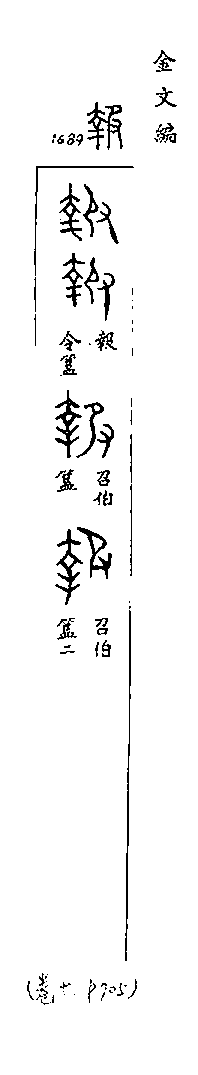 金文編
1689 報
報
令簋
召伯
簋
召伯
簋二
(卷十. P705)